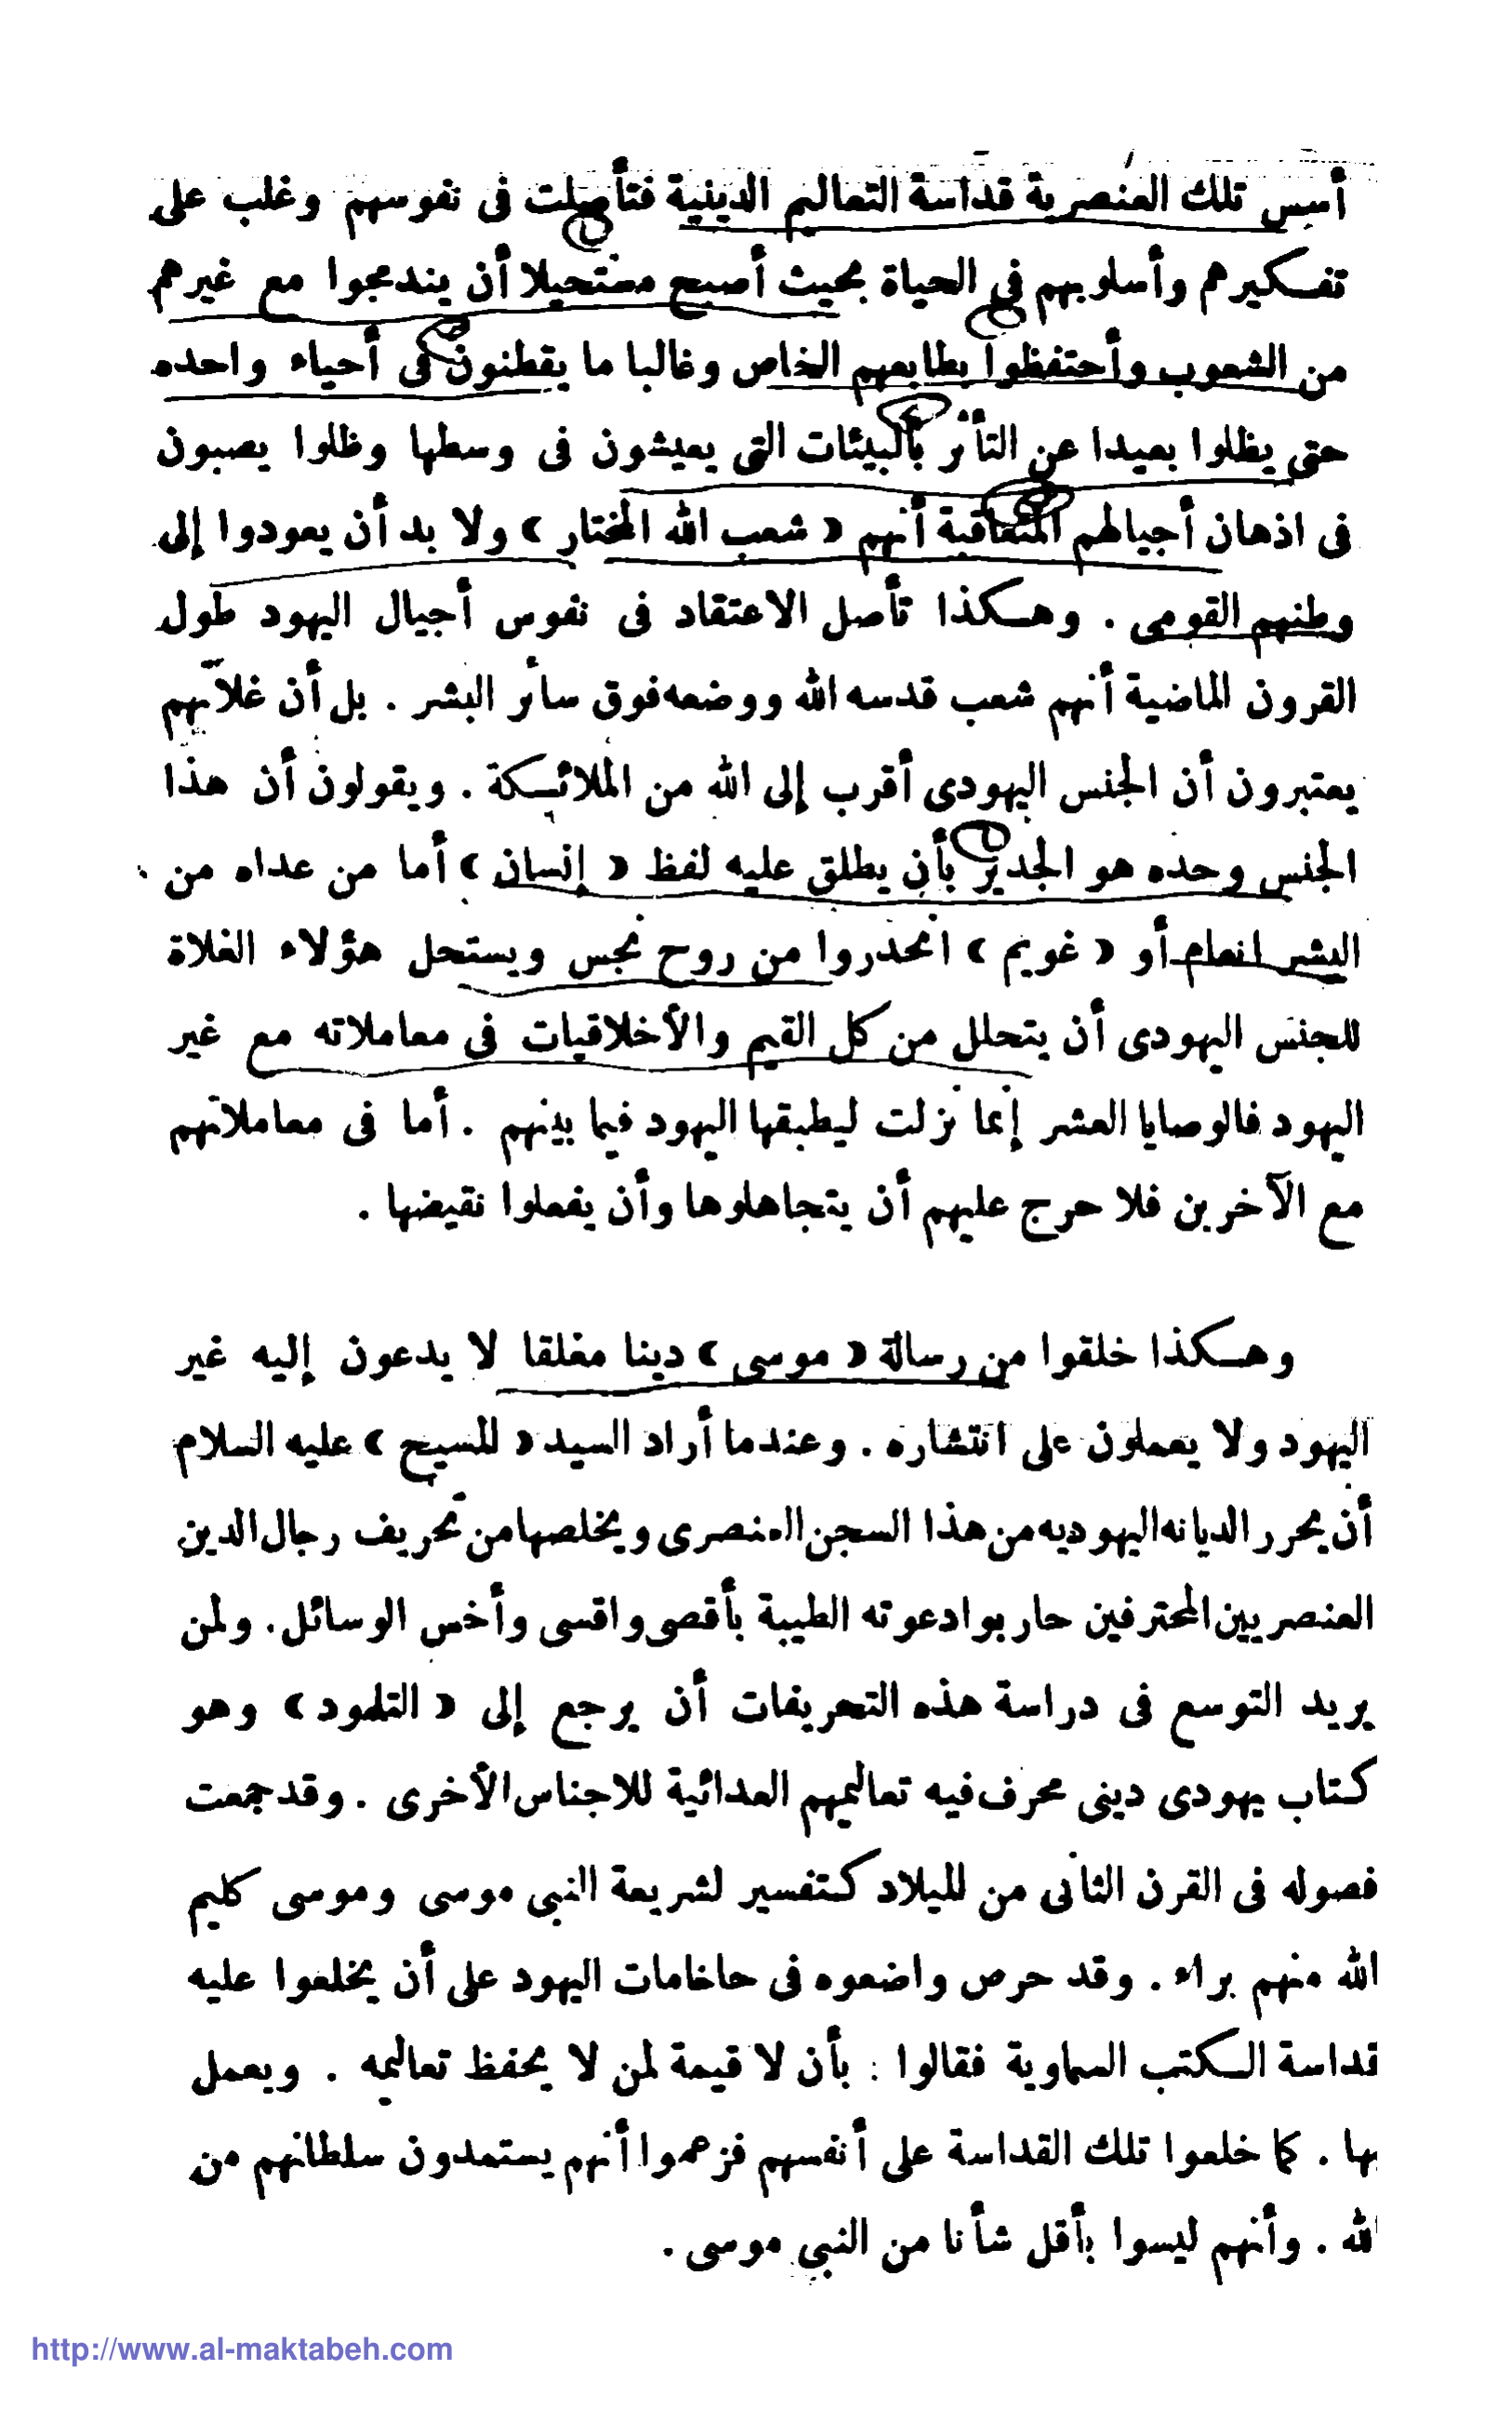 أسس تلك العنصرية قداسة التعاليم الدينية فتأصلت فى نفوسهم وغلب على
تفكيرهم وأسلوبهم فى الحياة بحيث أصبح مستحيلا أن يندمجوا مع غيرهم
من الشعوب وأحتفظوا بطابعهم الخاص وغالبا ما يقطنون فى أحياء واحده
حتى يظلوا بعيدا عن التأثر بالبيئات التى يعيشون فى وسطها وظلوا يصبون
فى اذهان أجيالهم المتعاقبة أنهم « شعب الله المختار » ولا بد أن يعودوا إلى
وطنهم القومى . وهكذا تأصل الاعتقاد فى نفوس أجيال اليهود طول
القرون الماضية أنهم شعب قدسه الله ووضعه فوق سائر البشر . بل أن غلاتهم
يعتبرون أن الجنس اليهودى أقرب إلى الله من الملائكة . ويقولون أن هذا
الجنس وحده هو الجدير بأن يطلق عليه لفظ « إنسان » أما من عداه من
البشر انعام أو « غويم » انحدروا من روح نجس ويستحل هؤلاء الغلاة
للجنس اليهودى أن يتحلل من كل القيم والأخلاقيات فى معاملاته مع غير
اليهود فالوصايا العشر إنما نزلت ليطبقها اليهود فيما بينهم . أما فى معاملاتهم
مع الآخرين فلا حرج عليهم أن يتجاهلوها وأن يفعلوا نقيضها .
وهكذا خلقوا من رسالة « موسى » دينا مغلقا لا يدعون إليه غير
اليهود ولا يعملون على انتشاره . وعندما أراد السيد « المسيح » عليه السلام
أن يحرر الديانه اليهوديه من هذا السجن العنصرى ويخلصها من تحريف رجال الدين
العنصريين المحترفين حاربوا دعوته الطيبة بأقصى واقسى وأخس الوسائل . ولمن
يريد التوسع فى دراسة هذه التحريفات أن يرجع إلى « التلمود » وهو
كتاب يهودى دينى محرف فيه تعاليمهم العدائية للاجناس الأخرى . وقد جمعت
فصوله فى القرن الثانى من الميلاد كتفسير لشريعة النبى موسى وموسى كليم
الله منهم براء . وقد حرص واضعوه فى حاخامات اليهود على أن يخلعوا عليه
قداسة الكتب السماوية فقالوا : بأن لا قيمة لمن لا يحفظ تعاليمه . ويعمل
بها . كما خلعوا تلك القداسة على أنفسهم فزعموا أنهم يستمدون سلطانهم من
الله . وأنهم ليسوا بأقل شأنا من النبى موسى .
http://www.al-maktabeh.com